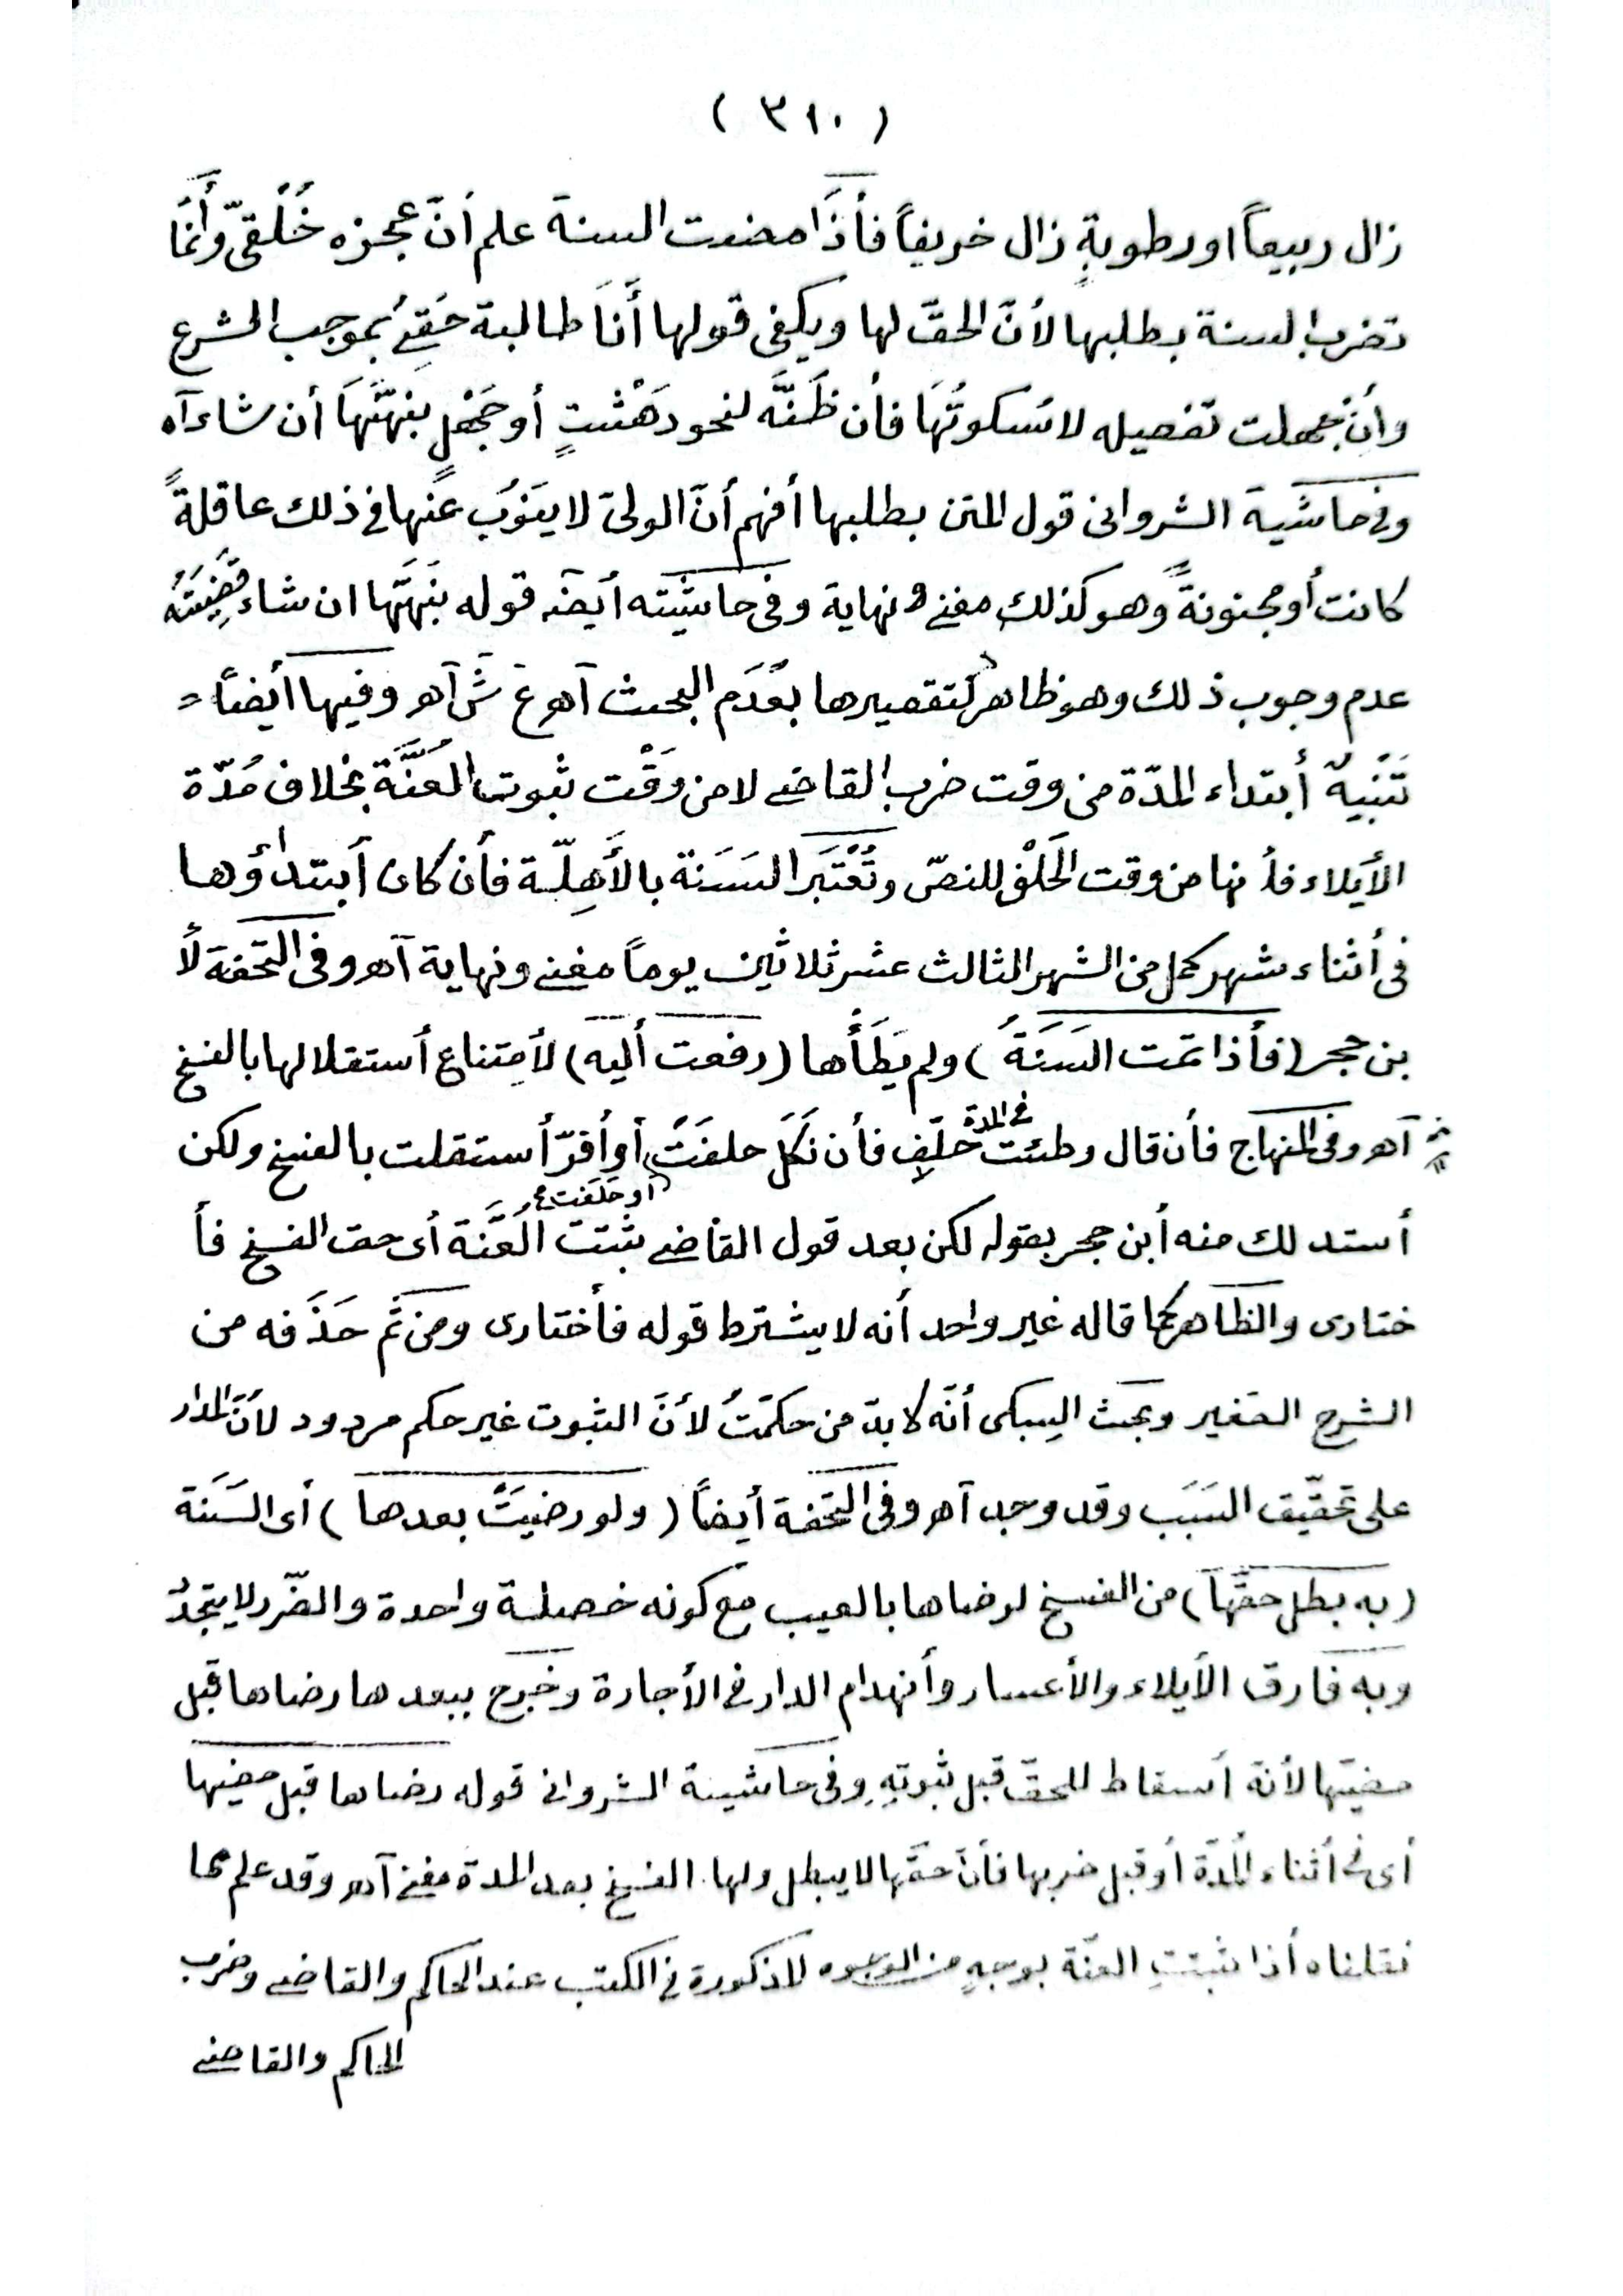 ( ٣١٠ )
زال ربيعاً اورطوبةٍ زال خريفاً فأذَا مضت السنة علم أنّ عجزه خُلْقىّ وأَنما
تضرب السنة بطلبها لأنّ الحقّ لها ويكفى قولها أَنَا طالبة حَقِىْ بموجب الشرع
وأن جهلت تفصيله لا سُكوتُهَا فأن ظَنَّه لنحو دَهْشتٍ أو جَهْلٍ بنهّهَا أن شاء آه
وفى حاشية الشروانى قول المتن بطلبها أفهم أنّ الولىّ لا يَنوُبَ عنها فى ذلك عاقلةً
كانت أو مجنونةً وهو كذلك مغنى ونهاية وفى حاشيته أيضہ قوله بنهّهَا ان شاء قضِيّتهُ
عدم وجوب ذلك وهو ظاهر لتقصيرها بعَدَم البحث آهـ عَ شَ آهـ وفيها أيضاً =
تَنْبِيهٌ أبتداء المدّة من وقت ضرب القاضى لا من وَقْت ثبوت العُنَّة بخلاف مُدّة
الأَيلاء فأنها من وقت الحَلْفِ للنصّ وتُعْتبَر السَنَة بالأَهِلّة فأن كان أبتداؤها
فى أثناء شهر كمل من الشهر الثالث عشر ثلاثين يوماً مغنى ونهاية آهـ وفى التحفة لأ
بن حجر (فأذا تمت السَنَةُ) ولم يَطَأْها (رفعت أليه) لأمتناع أستقلالها بالفسخ
آهـ وفى المنهاج فأن قال وطئت فى المدة حَلَفِ فأن نَكَلَ حلفَتْ أو أقرّ أستقلت بالفسخ ولكن
أو حَلَفت
أستدلك منه أبن حجر بقوله لكن بعد قول القاضى ثبتت العُنَّة أى حق الفسخ فأ
ختارى والظاهر كما قاله غير واحد أنه لا يشترط قوله فأختارى ومن ثَم حَذَفه من
الشرح الصغير وبحث السبكى أنّه لا بدّ من حكمتُ لأنّ الثبوت غير حكم مردود لأنّ المدار
على تحقّيق السَبَب وقد وجد آهـ وفى التحفة أيضاً (ولو رضيَتْ بعدها) أى السَنَة
(به بطل حقّها) من الفسخ لرضاها بالعيب مع كونه خصلة واحدة والضّرر لا يتجدّدُ
وبه فارق الأيلاء والأعسار وأنهدام الدار فى الأجارة وخرج ببعدها رضاها قبل
مضيّها لأنه أسقاط للحقّ قبل ثبوتِهِ وفى حاشية الشروانى قوله رضاها قبل مضيها
أى فى أثناء المدّة أو قبل ضربها فأنّ حقّها لا يبطل ولها الفسخ بعد المدة مغنى آهـ وقد علم مما
نقلناه أذا ثبتتِ العنّة بوجهٍ من الوجوه المذكورة فى الكتب عند الحاكم والقاضى وضرب
الحاكم والقاضى